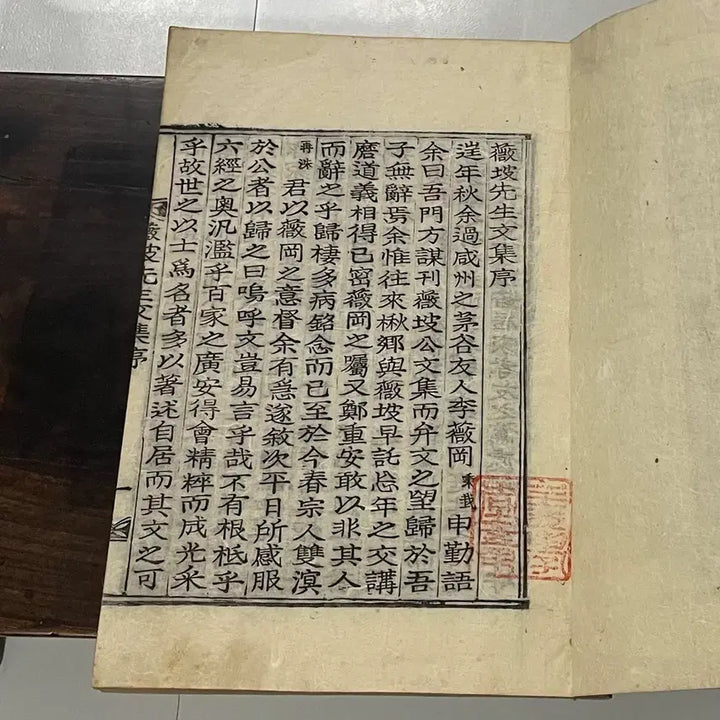 薇坡先生文集序
年秋余過咸州之茅谷友人李薇岡申勤語
余曰吾門方謀刊薇坡公文集而弁文之望歸於吾
子無辭焉余惟往來楸鄉與薇坡早託忘年之交講
磨道義相得已密薇岡之囑又鄭重安敢以非其人
而辭之乎歸棲多病銘念而已至於今春宗人雙溟
再洙 君以薇岡之意督余有急遂敍次平日所感服
於公者以歸之曰嗚呼文豈易言乎哉不有根柢乎
六經之奧汎濫乎百家之廣安得會精粹而成光采
乎故世之以士爲名者多以著述自居而其文之可
薇坡先生文集序 一